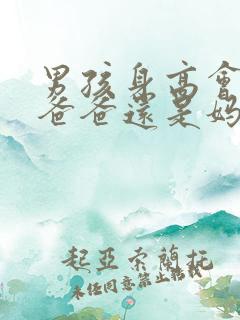 男孩身高會
爸爸還是媽
起亞索蘭托
未經同意禁止轉載